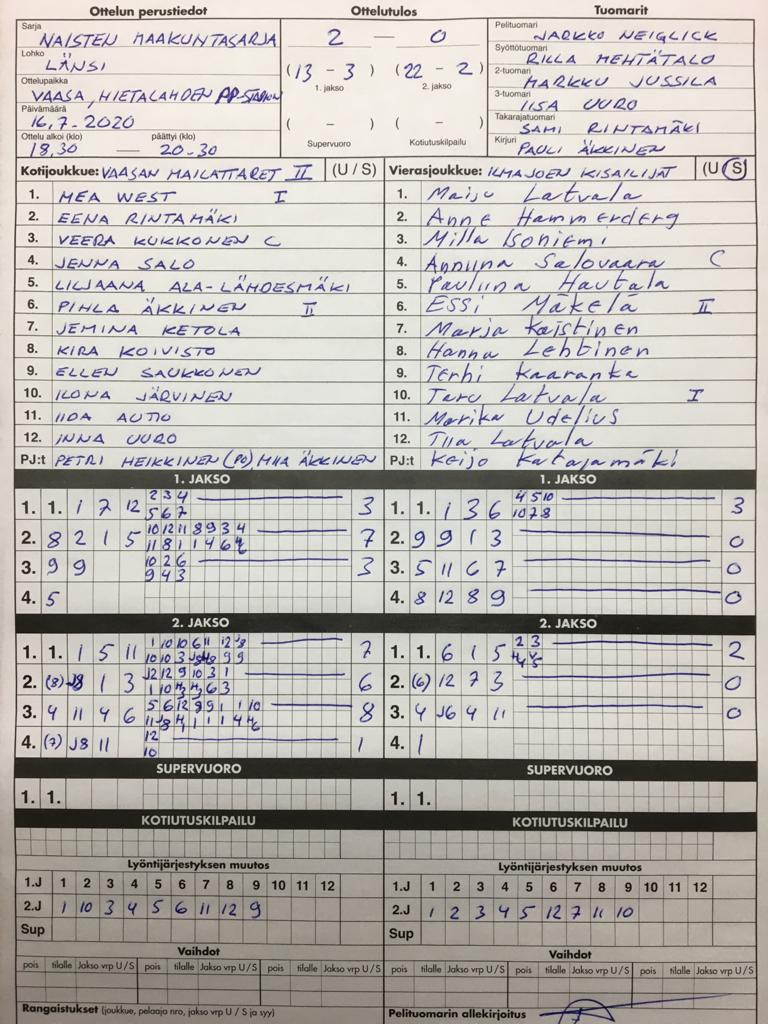 Ottelun perustiedot Ottelutulos Tuomarit
Sarja
NAISTEN MAAKUNTASARJA
Lohko
LÄNSI
Ottelupaikka
VAASA, HIETALAHDEN PP-STADION
Päivämäärä
16.7-2020
Ottelu alkoi (klo) päättyi (klo)
18.30 — 20.30
2 — 0
(13 - 3) (22 - 2)
1. jakso 2. jakso
( - ) ( - )
Supervuoro Kotiutuskilpailu
Pelituomari
JARKKO NEIGLICK
Syöttötuomari
RILLA MEHTÄTALO
2-tuomari
MARKKU JUSSILA
3-tuomari
IISA UURO
Takarajatuomari
SAMI RINTAMÄKI
Kirjuri
PAULI ÄKKINEN
Kotijoukkue: VAASAN MAILATTARET II (U / S)
1. MEA WEST I
2. EENA RINTAMÄKI
3. VEERA KUKKONEN C
4. JENNA SALO
5. LILJAANA ALA-LÄHDESMÄKI
6. PIHLA ÄKKINEN II
7. JEMINA KETOLA
8. KIRA KOIVISTO
9. ELLEN SAUKKONEN
10. ILONA JÄRVINEN
11. IIDA AUTIO
12. INNA UURO
PJ:t PETRI HEIKKINEN (PO) MIIA ÄKKINEN
Vierasjoukkue: ILMAJOEN KISAILIJAT (U/S)
1. Maiju Latvala
2. Anne Hammerberg
3. Milla Isoniemi
4. Anniina Salovaara C
5. Pauliina Hautala
6. ESSI Mäkelä II
7. Marja Koistinen
8. Hanna Lehtinen
9. Terhi Kaaranka
10. Taru Latvala I
11. Marika Udelius
12. Tiia Latvala
PJ:t Keijo Katajamäki
1. JAKSO
1. 1. 1 7 12 2 3 4 3
5 6 7
2. 8 2 1 5 10 12 11 8 9 3 4 7
3. 9 9 10 2 6 3
9 4 3
4. 5
1. JAKSO
1. 1. 1 3 6 4 5 10 3
10 7 8
2. 9 9 1 3 0
3. 5 11 6 7 0
4. 8 12 8 9 0
2. JAKSO
1. 1. 1 5 11 7
2. (8) J8 1 3 J12 12 9 10 3 1 6
3. 4 11 4 6 8
4. (7) J8 11 12 1
10
2. JAKSO
1. 1. 6 1 5 2 3 2
2. (6) 12 7 3 0
3. 4 J6 4 11 0
4. 1
SUPERVUORO
1. 1.
SUPERVUORO
1. 1.
KOTIUTUSKILPAILU
KOTIUTUSKILPAILU
Lyöntijärjestyksen muutos
1.J 1 2 3 4 5 6 7 8 9 10 11 12
2.J 1 10 3 4 5 6 11 12 9
Sup
Lyöntijärjestyksen muutos
1.J 1 2 3 4 5 6 7 8 9 10 11 12
2.J 1 2 3 4 5 12 7 11 10
Sup
Vaihdot
pois tilalle Jakso vrp U/S pois tilalle Jakso vrp U/S pois tilalle Jakso vrp U/S
Vaihdot
pois tilalle Jakso vrp U/S pois tilalle Jakso vrp U/S pois tilalle Jakso vrp U/S
Rangaistukset (joukkue, pelaaja nro, jakso vrp U / S ja syy)
Pelituomarin allekirjoitus